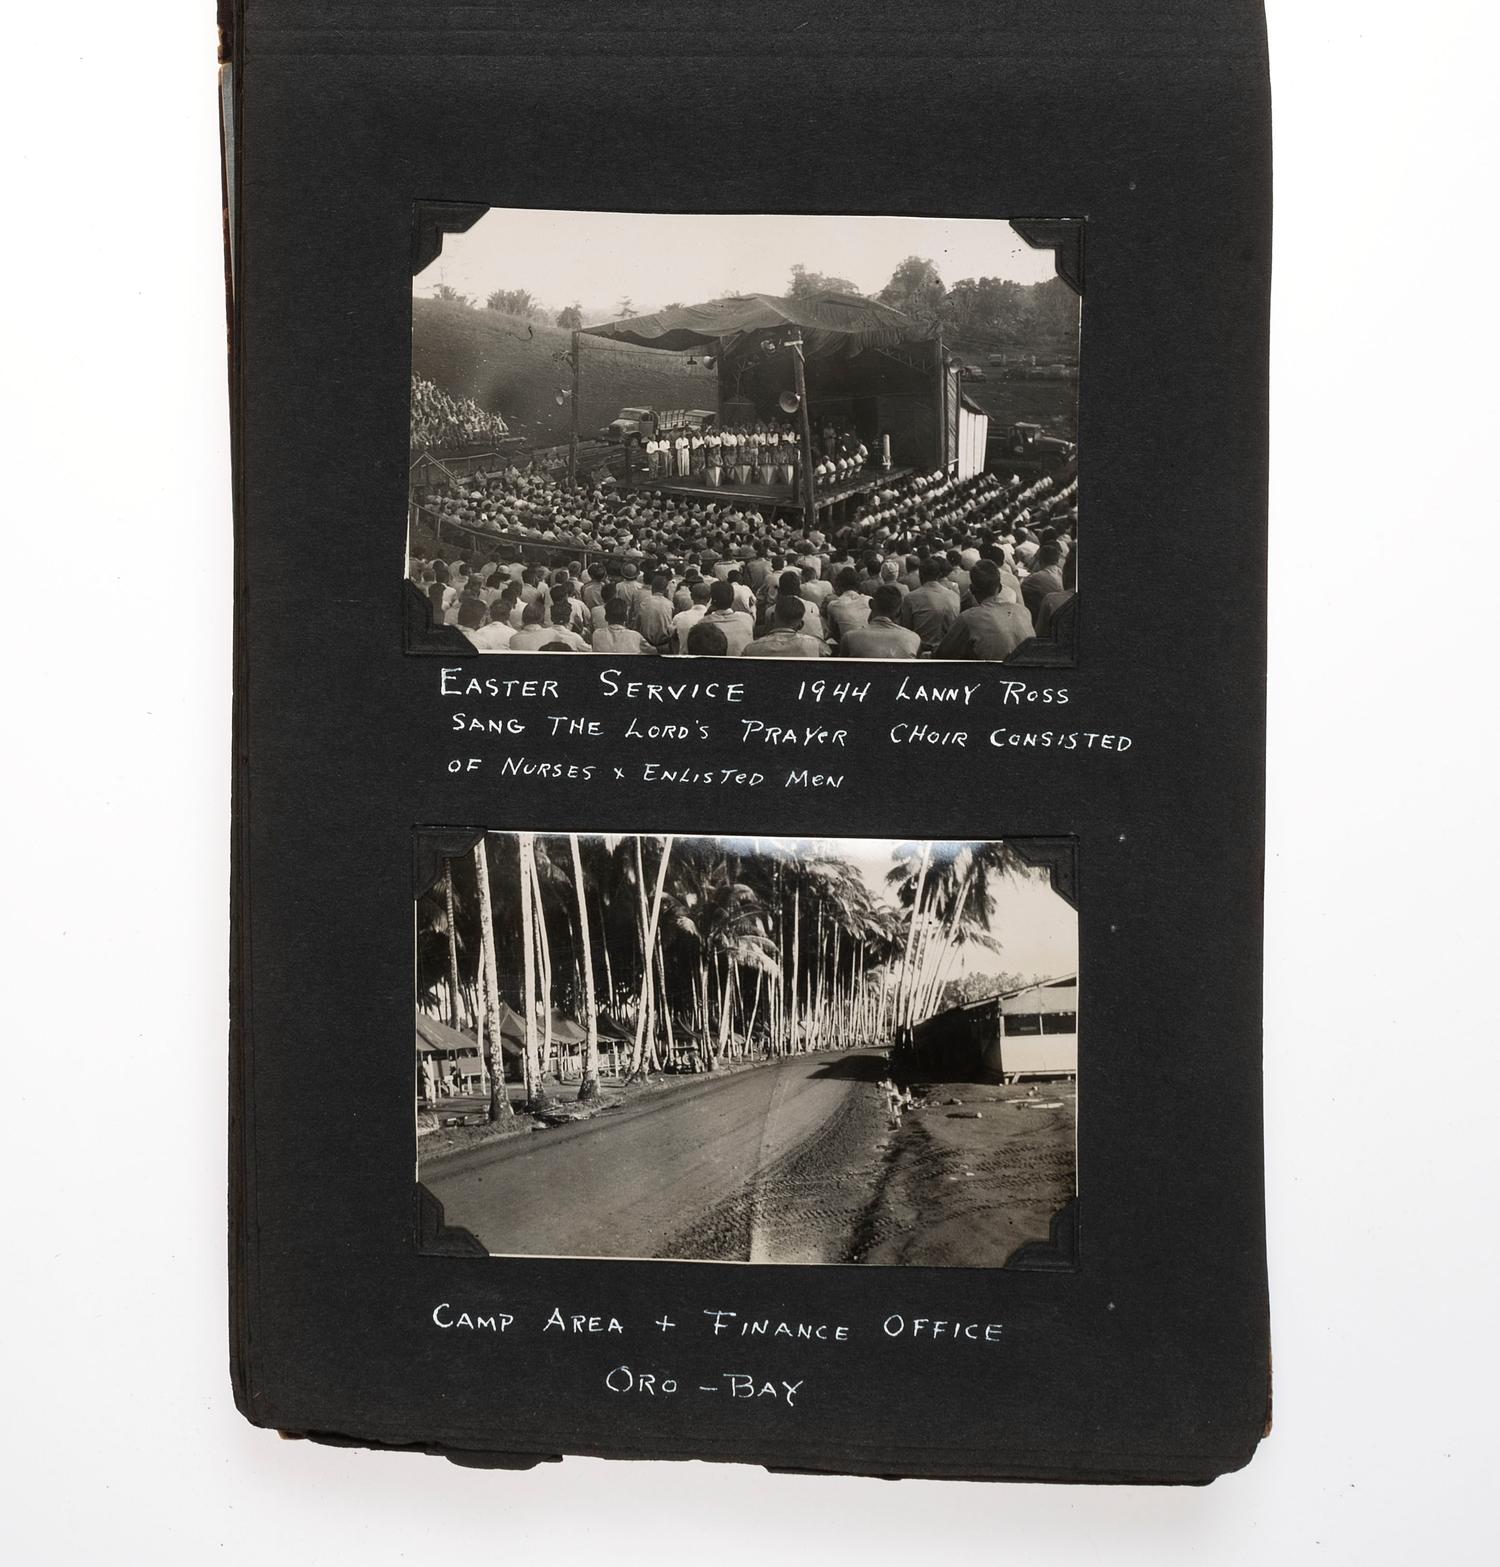 EASTER SERVICE 1944 LANNY ROSS
SANG THE LORD'S PRAYER CHOIR CONSISTED
OF NURSES & ENLISTED MEN
CAMP AREA + FINANCE OFFICE
ORO - BAY